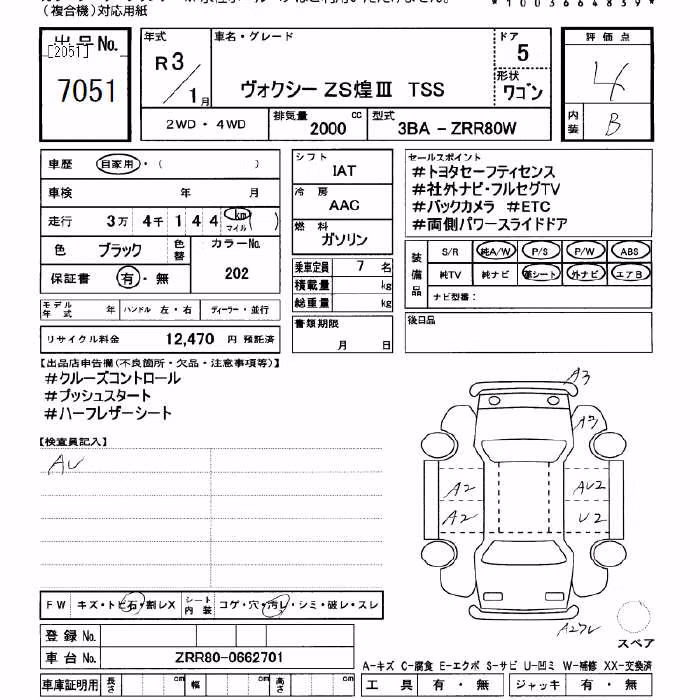 (複合機)対応用紙
*1003664839*
出品No.
[2051]
7051
年式
R3/1月
車名・グレード
ヴォクシー ZS煌Ⅲ TSS
ドア
5
形状
ワゴン
評価点
4
内装
B
2WD・4WD
排気量
2000
cc
型式
3BA - ZRR80W
車歴 自家用・( )
車検 年 月
走行 3万 4千 1 4 4 km マイル
色 ブラック 色替
カラーNo.
202
保証書 有・無
モデル年式 年
ハンドル 左・右
ディーラー・並行
リサイクル料金 12,470 円 預託済
シフト
IAT
冷房
AAC
燃料
ガソリン
乗車定員 7 名
積載量 kg
総重量 kg
書類期限
月 日
セールスポイント
#トヨタセーフティセンス
#社外ナビ・フルセグTV
#バックカメラ #ETC
#両側パワースライドドア
装備品
S/R 純A/W P/S P/W ABS
純TV 純ナビ 革シート 外ナビ エアB
ナビ型番：
後日品
【出品店申告欄(不良箇所・欠品・注意事項等)】
#クルーズコントロール
#プッシュスタート
#ハーフレザーシート
【検査員記入】
AU
A3
A2
AU2
A2
U2
スペア
FW キズ・トビ石・割レX
シート内装 コゲ・穴・汚レ・シミ・破レ・スレ
登録No.
車台No. ZRR80-0662701
車庫証明用 長さ cm 幅 cm 高さ cm
A-キズ C-腐食 E-エクボ S-サビ U-凹ミ W-補修 XX-交換済
工具 有・無 ジャッキ 有・無